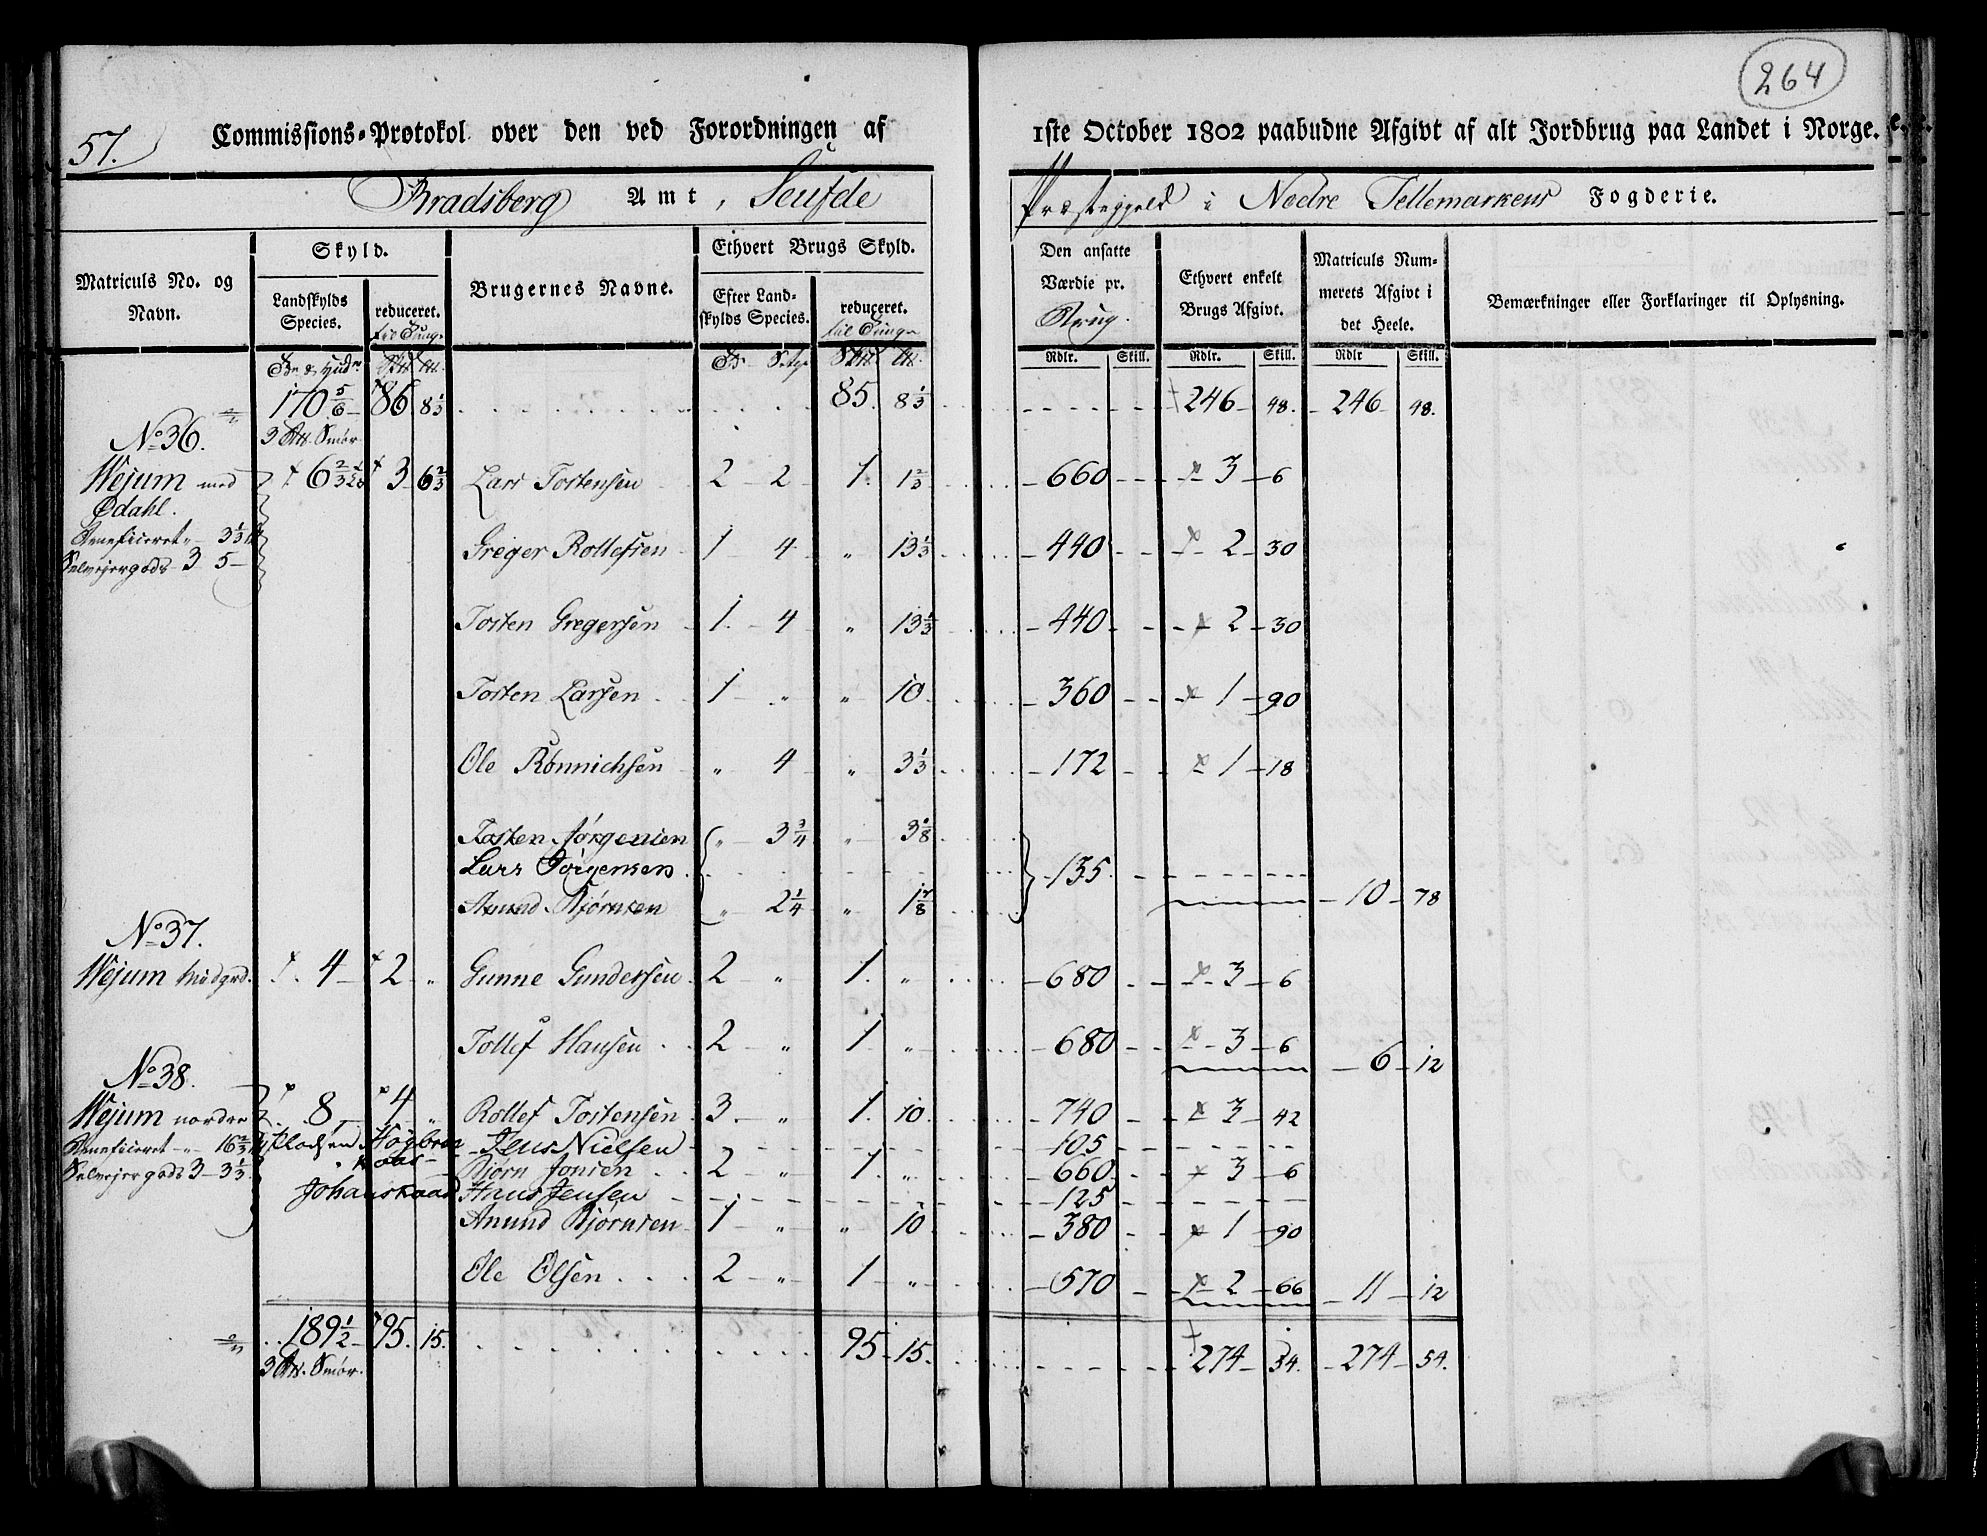 264
57.
Commissions-Protokol over den ved Forordningen af 1ste October 1802 paabudne Afgivt af alt Jordbrug paa Landet i Norge.
Bradsberg Amt, Seufde Præstegjeld i Nedre Tellemarkens Fogderie.
Matriculs No. og Navn. Skyld. Landskylds Species. reduceret. til Tunge Brugernes Navne. Ethvert Brugs Skyld. Efter Landskylds Species. reduceret. til Tunge Den ansatte Værdie pr. Brug. Ethvert enkelt Brugs Afgivt. Matriculs Nummerets Afgivt i det Heele. Bemærkninger eller Forklaringer til Oplysning.
Rdlr. Skill. Rdlr. Skill. Rdlr Skill.
170 5/6 86 8 1/3 85. 8 1/3 246 48. 246 48.
No 36. 3 Smør
Wejum med 6 2/3 3 6 2/3 Lars Tostensen 2 2 1. 1 2/3 660 3 6
Ødahl.
Beneficeret " 3 1/3 Greger Rollefsen 1 4 " 13 1/3 440 2 30
Selvejergods 3 5
Tosten Gregersen 1. 4 " 13 1/3 440 2 30
Tosten Larsen 1 " " 10 360 1 90
Ole Rønnichsen " 4 " 3 1/3 172 1 18
Tosten Jørgensen " 3 3/4 " 3 1/8
Lars Jørgensen 135.
Anund Bjørnsen " 2 1/4 " 1 7/8 10 78
No 37.
Wejum Midgrd. 4 2 " Gunne Gundersen 2 " 1. " 680 3 6
Tollef Hansen 2 " 1 " 680 3 6 6 12
No 38.
Wejum nordre 8 4 " Rollef Tostensen 3. " 1. 10 740 3 42
Beneficeret " 16 2/3 Pladsen Høgbraa Jens Nielsen 105
Selvejergods 3 3 1/3 Bjørn Jonsen 2 " 1. " 660 3 6
Johanskaas Hans Jensen 125
Anund Bjørnsen 1 " " 10 380 1 90
Ole Olsen 2 " 1 " 570 2 66 11 12
189 1/2 95. 15. 95 15. 274 54. 274 54.
3 Smør.